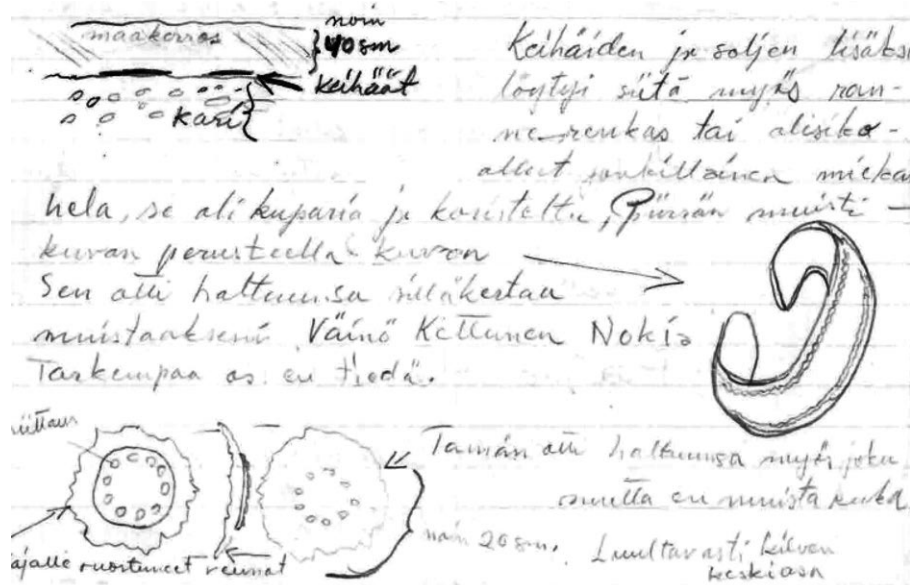 noin
maakerros
40 sm
keihäät
kari
Keihäiden ja soljen lisäksi
löytyi siitä myös ran-
nerenkas tai olisiko
ollut jonkillainen miekan
hela, se oli kuparia ja koristeltu, Piirrän muisti-
kuvan perusteella kuvan
Sen otti haltuunsa silläkertaa
muistaakseni Väinö Kettunen Nokia
Tarkempaa os. en tiedä.
Tämän otti haltuunsa myös joku
mutta en muista kuka
noin 20 sm.
Luultavasti kilven
keskiosa
ruostuneet reunat